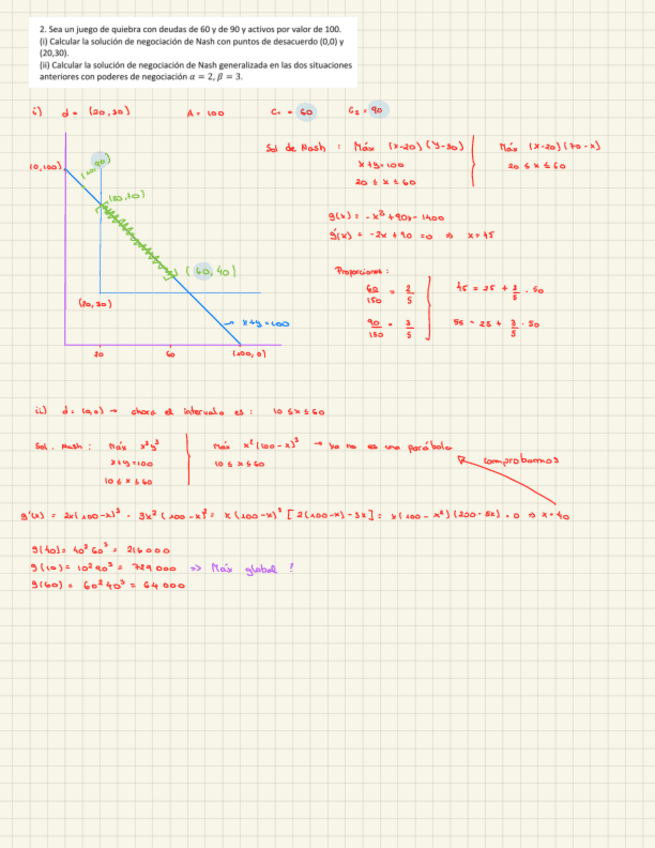 2. Sea un juego de quiebra con deudas de 60 y de 90 y activos por valor de 100.
(i) Calcular la solución de negociación de Nash con puntos de desacuerdo (0,0) y
(20,30).
(ii) Calcular la solución de negociación de Nash generalizada en las dos situaciones
anteriores con poderes de negociación α = 2, β = 3.
i) d = (20,30) A = 100 C₁ = 60 C₂ = 90
Sol de Nash : Máx (x-20)(y-30)
x+y=100
20 ≤ x ≤ 60
Máx (x-20)(70-x)
20 ≤ x ≤ 60
(0,100)
(10,90)
(60,40)
(20,30)
x+y=100
20 60 (100,0)
g(x) = -x² + 90x - 1400
g'(x) = -2x + 90 = 0 ⇒ x=45
Proporciones :
60/150 = 2/5
90/150 = 3/5
55 = 25 + 3/5 · 50
ii) d = (0,0) → ahora el intervalo es : 10 ≤ x ≤ 60
Sol. Nash : Máx x²y³
x+y=100
10 ≤ x ≤ 60
Máx x²(100-x)³ → Ya no es una parábola
10 ≤ x ≤ 60
comprobamos
g'(x) = 2x(100-x)³ - 3x²(100-x)² = x(100-x)² [2(100-x)-3x] = x(100-x²)(200-5x) = 0 ⇒ x=40
g(40) = 40² 60³ = 216000
g(10) = 10² 90³ = 729000 ⇒ Máx global ?
g(60) = 60² 40³ = 64000